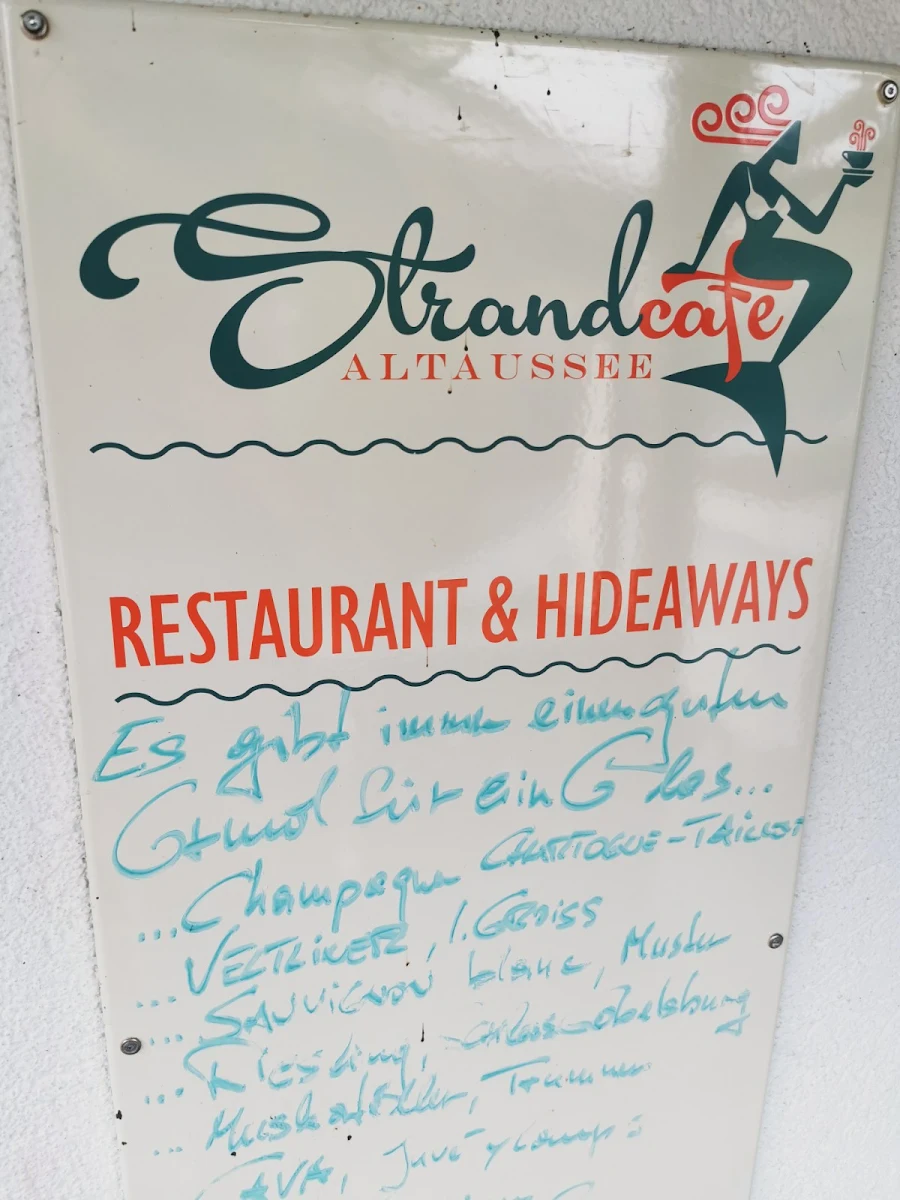 Strandcafe
ALTAUSSEE
RESTAURANT & HIDEAWAYS
Es gibt immer einen guten
Grund für ein Glas...
...Champagner CHARTOGNE-TAILLET
...VELTLINER, I. GROISS
...SAUVIGNON blanc, Muster
...Riesling, Schloss Gobelsburg
...Muskateller, Trummer
CAVA, Juvé y Camps